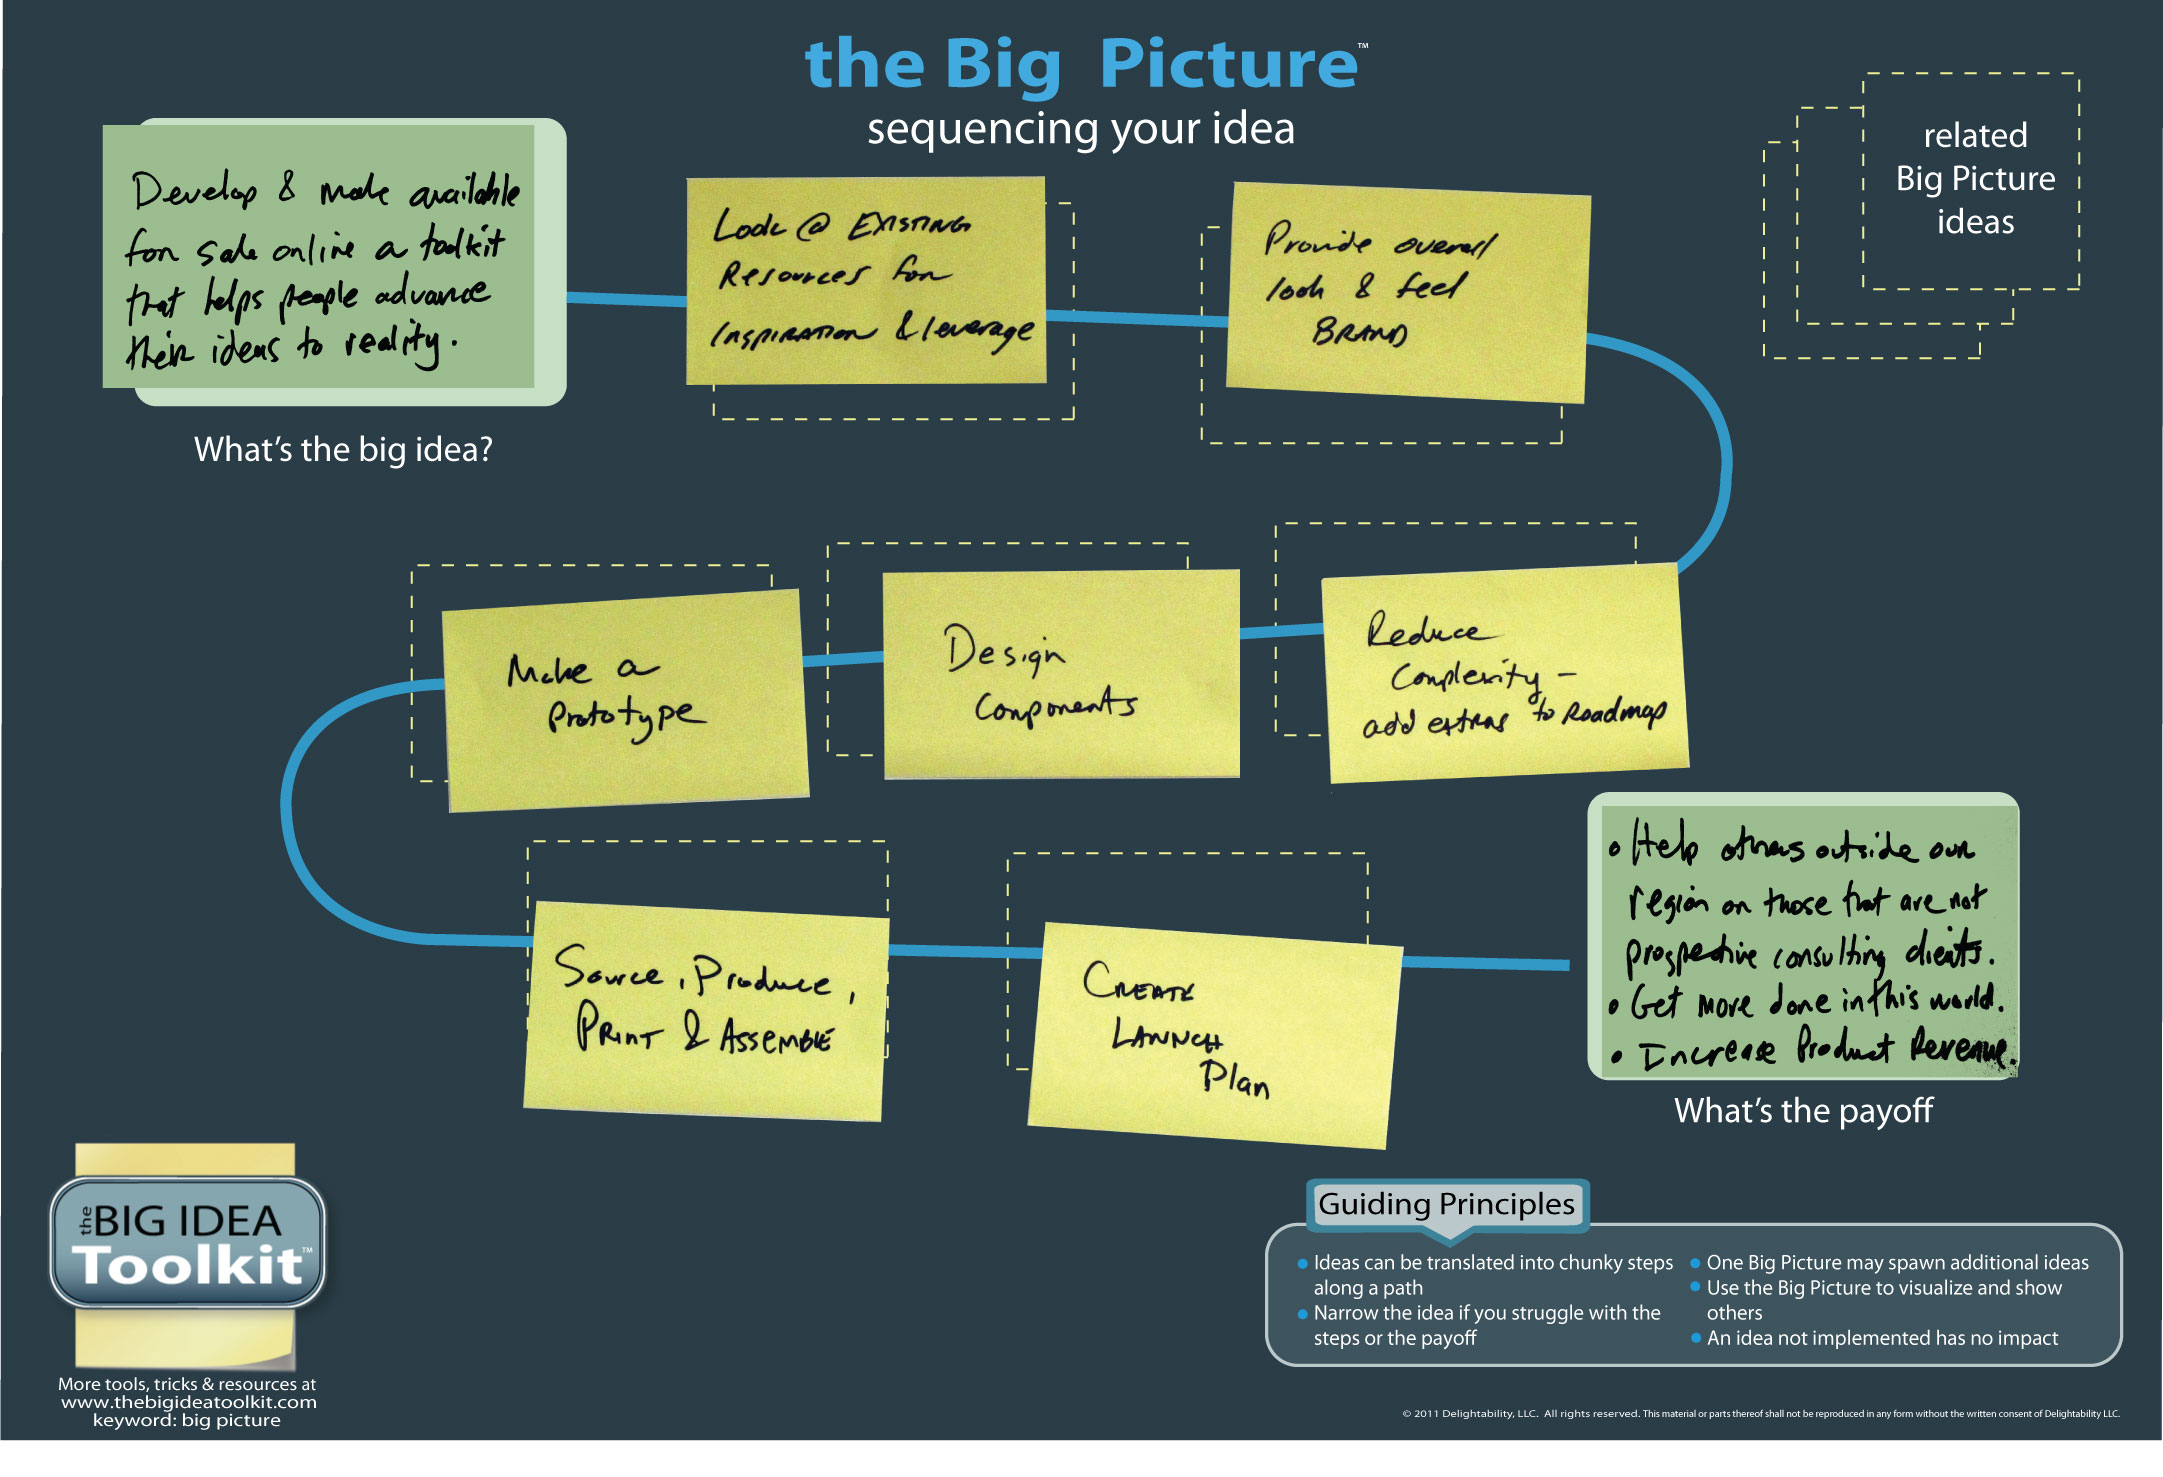 the Big Picture™
sequencing your idea
related
Big Picture
ideas
Develop & make available
for sale online a toolkit
that helps people advance
their ideas to reality.
What's the big idea?
Look @ Existing
Resources for
Inspiration & leverage
Provide overall
look & feel
BRAND
Reduce
Complexity -
add extras to Roadmap
Design
Components
Make a
Prototype
Source, Produce,
Print & Assemble
Create
Launch
Plan
• Help others outside our
region or those that are not
prospective consulting clients.
• Get more done in this world.
• Increase Product Revenue.
What's the payoff
Guiding Principles
• Ideas can be translated into chunky steps
along a path
• Narrow the idea if you struggle with the
steps or the payoff
• One Big Picture may spawn additional ideas
• Use the Big Picture to visualize and show
others
• An idea not implemented has no impact
the BIG IDEA
Toolkit™
More tools, tricks & resources at
www.thebigideatoolkit.com
keyword: big picture
© 2011 Delightability, LLC. All rights reserved. This material or parts thereof shall not be reproduced in any form without the written consent of Delightability LLC.